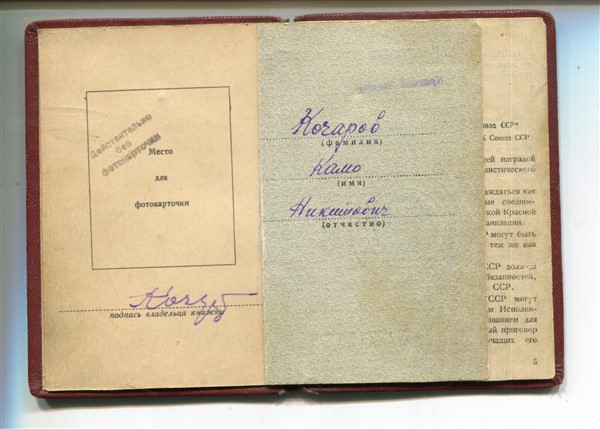 Действительно
без
фотокарточки
Место
для
фотокарточки
подпись владельца книжки
Кочаров
(фамилия)
Камо
(имя)
Никитович
(отчество)
юза ССР"
Союза ССР
ей наградой
листического
ждаться как
ые соедине-
ской Красной
анизации.
Р могут быть
тем же или
ССР должны
бязанностей,
ССР.
ССР могут
м Исполни-
ованием для
ый приговор
чащих его
5